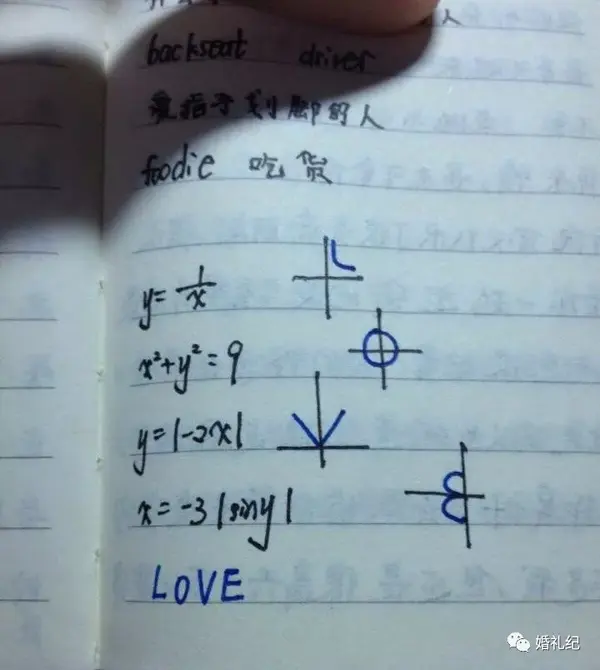 人
backseat driver
爱指手划脚的人
foodie 吃货
y = 1/x
x²+y² = 9
y = |-2x|
x = -3|siny|
LOVE
婚礼纪